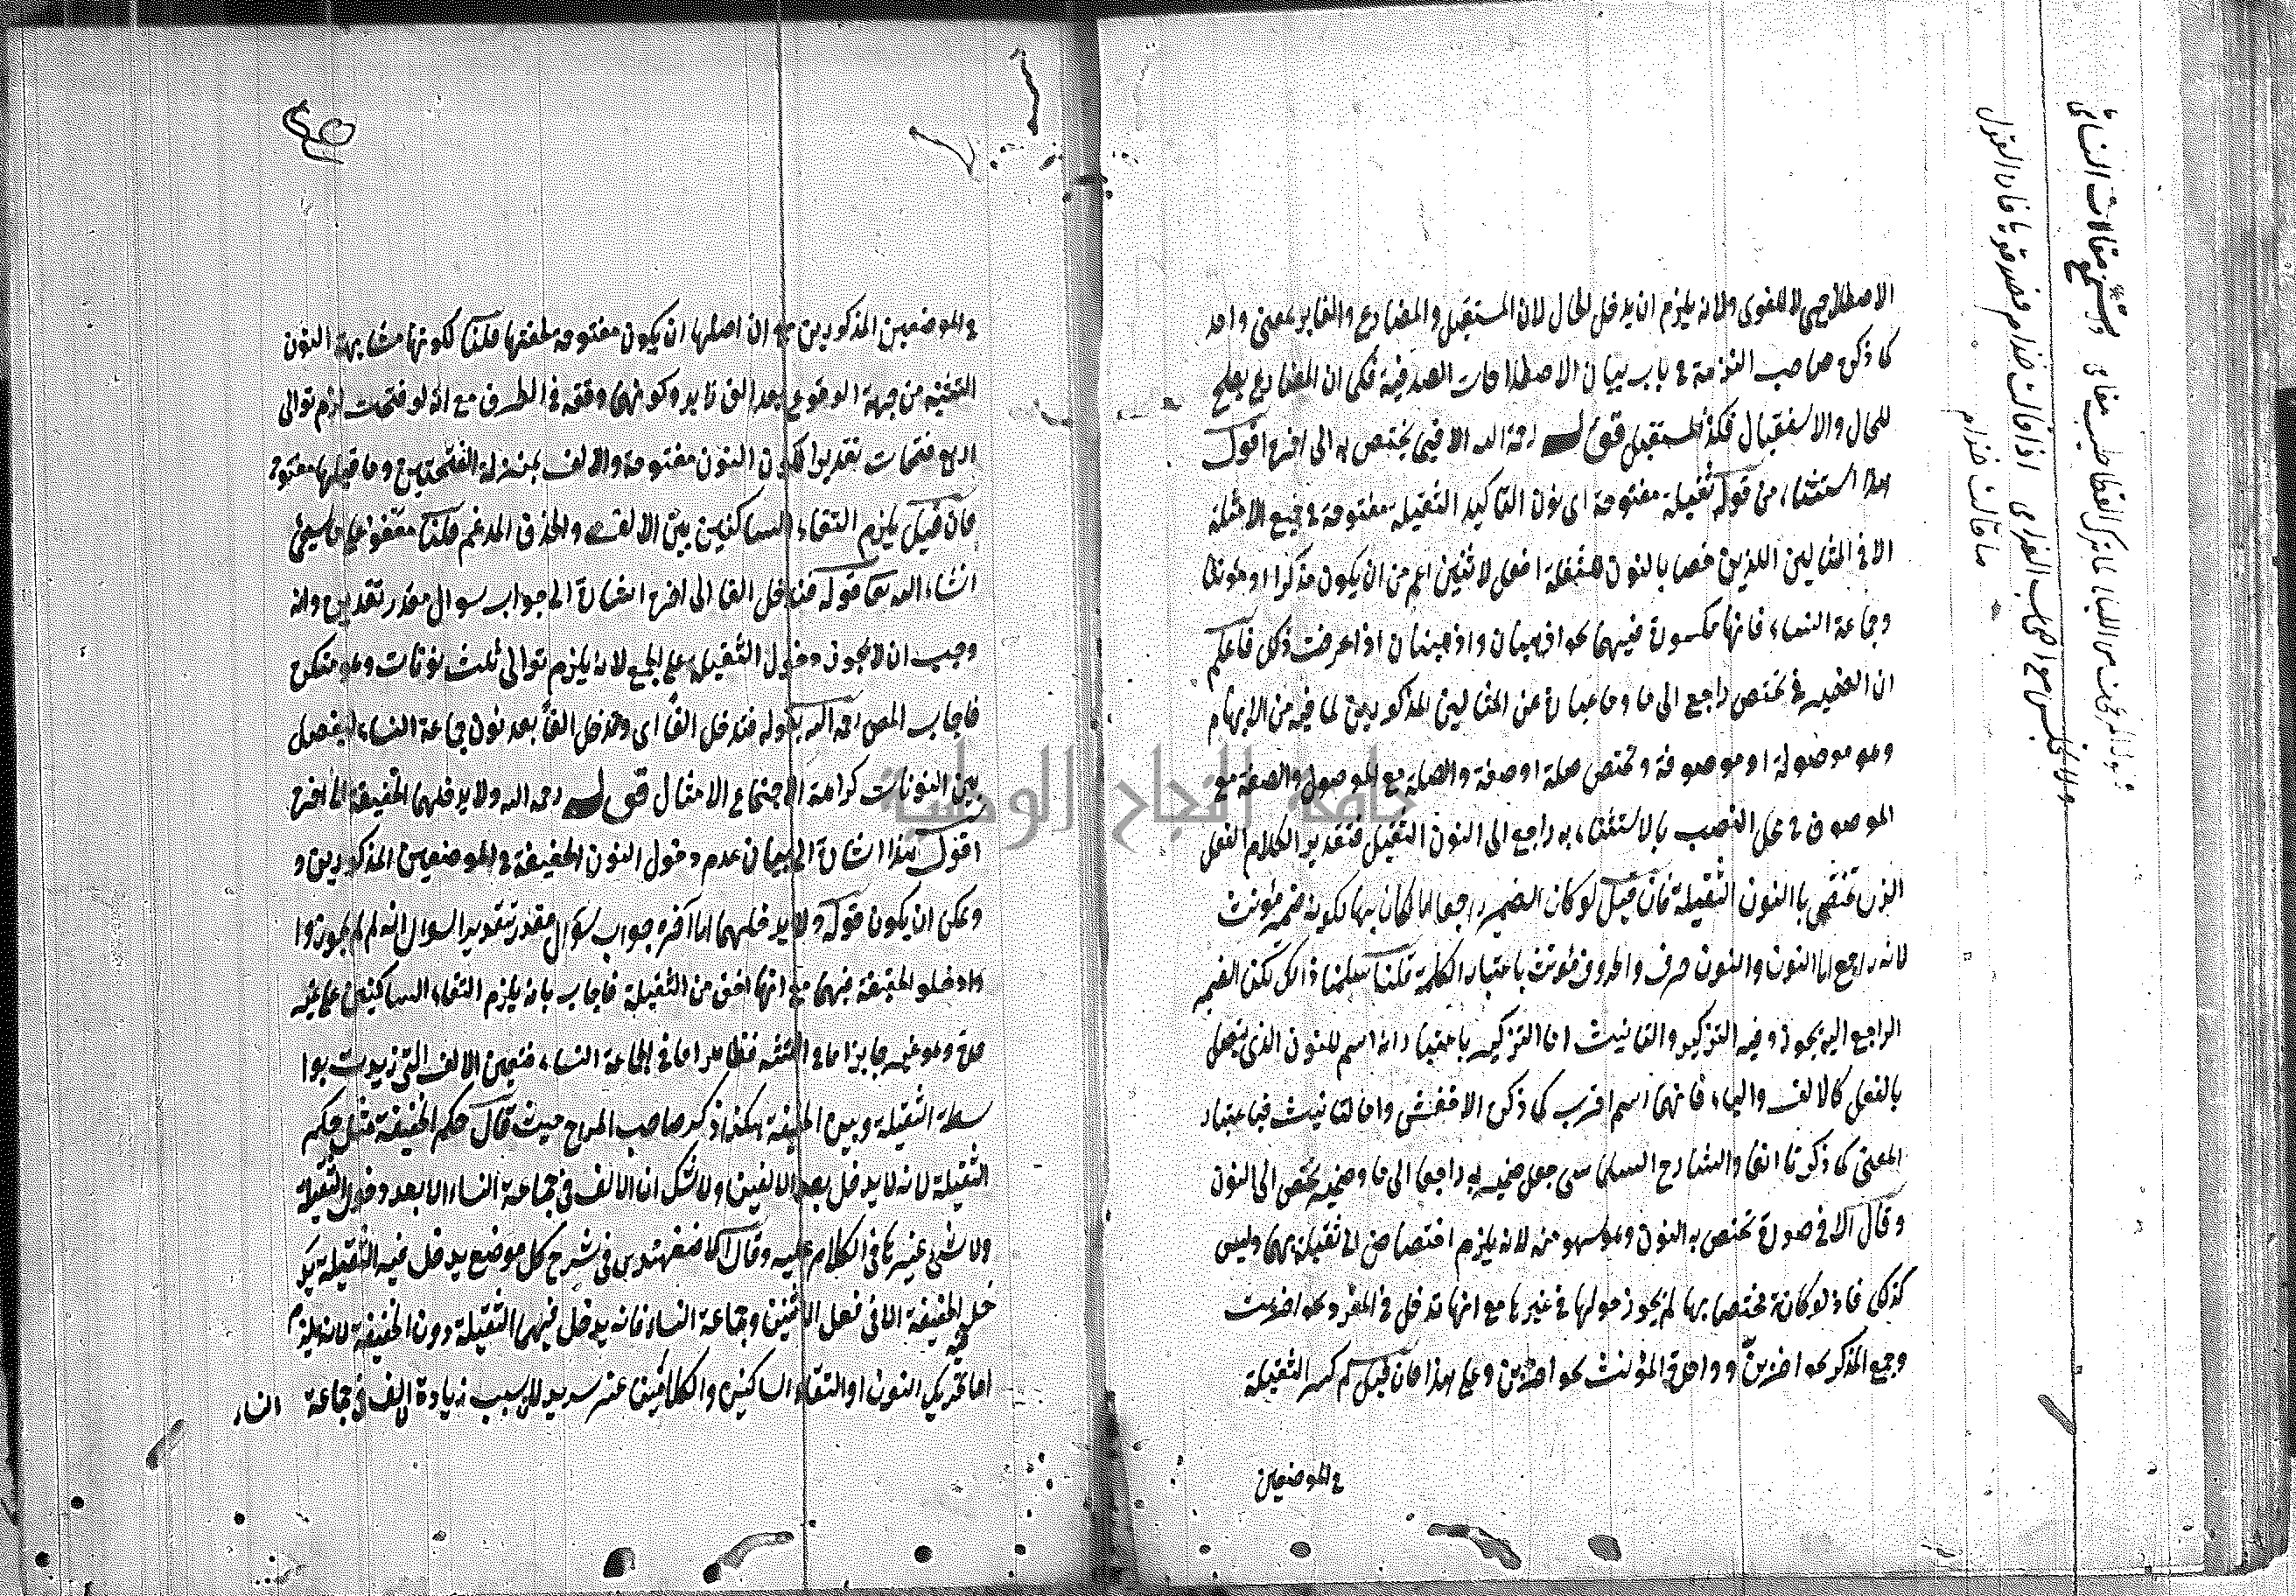 الاصطلاحى لا اللغوى والا يلزم ان يدخل الحال لان المستقبل والمضارع والغابر بمعنى واحد
كما ذكره صاحب النزهة فى باب بيان الاصطلاحات الصرفية فكما ان المضارع يصلح
للحال والاستقبال فكذا المستقبل قوله رحمة الله الا فيما يختص به الى اخره اقول
هذا استثناء من قوله ثقيلة مفتوحة اى نون التاكيد الثقيلة مفتوحة فى جميع الامثلة
الا فى المثالين اللذين خصا بالنون المثقلة اعنى لاثنين اعم من ان يكون مذكرا او مؤنثا
وجماعة النساء فانها مكسورة فيهما نحو اذهبان واذهبنان اذا عرفت ذلك فاعلم
ان الضمير فى تختص راجع الى ما وما عبارة عن المثالين المذكورين لما فيه من الابهام
وهو موصولة او موصوفة وتختص صلة او صفة والصلة مع الموصول والصفة مع
الموصوف فى محل النصب بالاستثناء به راجع الى النون الثقيل فتقدير الكلام الفعل
الذى تختص بالنون الثقيلة فان قيل لو كان الضمير راجعا اما لكان بها لكونه ضمير مؤنث
لانه راجع اما النون والنون حرف والحروف مؤنث باعتبار الكلمة قلنا سلمنا ذالك لكن الضمير
الراجع اليه يجوز فيه التزكير والتانيث اما التزكير باعتبار انه اسم للنون الذى يتصل
بالفعل كالالف والياء فانهما اسم اضرب كما ذكره الاخفش واما التانيث فباعتبار
المعنى كما ذكرنا انفا والشارح السلماسى جعل ضمير به راجعا الى ما وضمير يختص الى النون
وقال الا فى صورة تختص به النون وهو سهو منه لانه يلزم اختصاص الثقيلة بهما وليس
كذلك فاذ لو كانة مختصا بها لم يجوز دخولها فى غيرها مع انها تدخل فى المفرد نحو اضربت
وجمع المذكر نحو اضربن وواحدة المؤنث نحو اضربن وعلى هذا فان قيل لم كسر الثقيلة
فى الموضعين
فى الموضعين المذكورين مع ان اصلها ان يكون مفتوحة لخفتها قلنا لكونها مشابهة النون
التثنية من جهة الوقوع بعد الف زايد وكونهما وقعه فى الطرف مع انه لو فتحت لزم توالى
اربع فتحات تقديرا لكون النون مفتوحة والالف بمنزلة الفتحتين وما قبلها مفتوح
فان قيل يلزم التقاء الساكنين بين الالف والحذف المدغم قلنا مغفو على ما سيجئ
انشاء الله تعا قوله فتدخل الفا الى اخره اشارة الى جواب سوال مقدر تقديره وانه
وجب ان لا يجوز دخول الثقيل على الجمع لانه يلزم توالى ثلث نونات وهو منكره
فاجاب المص رحمه الله بقوله فتدخل الفا اى وتدخل الفا بعد نون جماعة النساء ليفصل
بين النونات كراهة الاجتماع الامثال قوله رحمه الله ولا يدخلهما الخفيفة الى اخره
اقول هذا اشارة الى بيان عدم دخول النون الخفيفة فى الموضعين المذكورين و
يمكن ان يكون قوله ولا يدخلهما اما آخره جواب سؤال مقدر تقدير السوال انه لم لم يجوزوا
وادخلو الخفيفة فيهما مع انها اخف من الثقيلة فاجاب بانه يلزم التقاء الساكنين على غير
حده وهو غير جايز اما فى التثنيه فظاهر اما فى الجماعة النساء فبين الالف التى زيدت بوا
سطة الثقيلة وبين الخفيفة هكذا ذكر صاحب المراح حيث قال حكم الخفيفة مثل حكم
الثقيلة لانه لا يدخل بعد الالفين ولا شك ان الالف فى جماعة النساء الا بعد دخول الثقيلة
ولا شئ غيرها فى الكلام عليه وقال فى شرح كل موضع يدخل فيه الثقيلة يد
خل الخفيفة الا فى فعل الاثنين وجماعة النساء فانه يدخل فيهما الثقيلة دون الخفيفة لانه يلزم
اما تحريك النون او التقاء الساكنين والكلاهما غير سديد للسبب زيادة الف فى جماعة النساء
اذا قالت خذام فصدقوها فان القول
ما قالت خذام
جامعة النجاح الوطنية